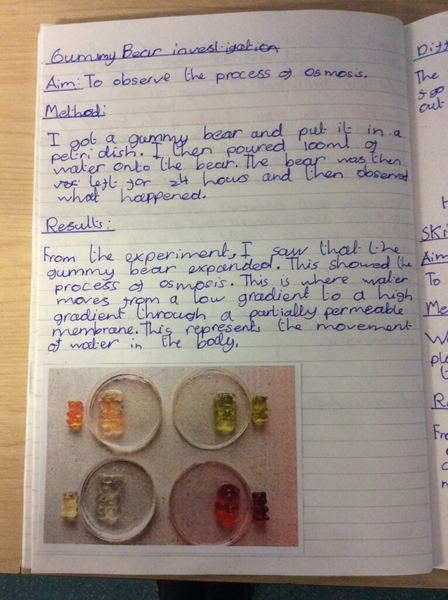 Gummy Bear investigation
Aim: To observe the process of osmosis.
Method:
I got a gummy bear and put it in a
petri dish. I then poured 100ml of
water onto the bear. The bear was then
left for 24 hours and then observed
what happened.
Results:
From the experiment, I saw that the
gummy bear expanded. This showed the
process of osmosis. This is where water
moves from a low gradient to a high
gradient through a partially permeable
membrane. This represents the movement
of water in the body.
The
out
Aim
To